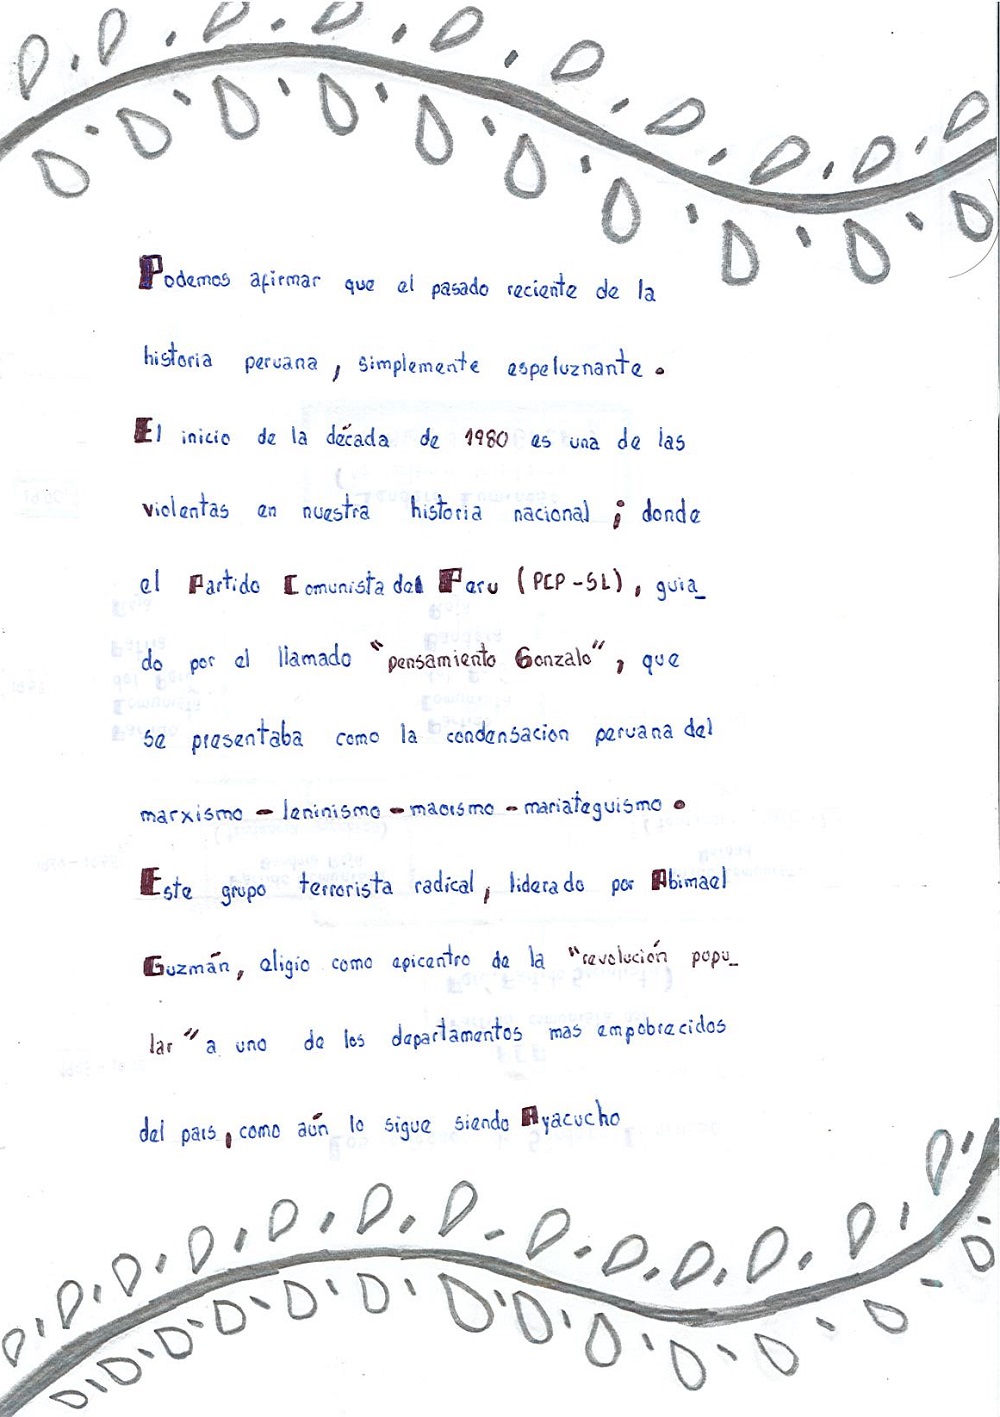 Podemos afirmar que el pasado reciente de la
historia peruana, simplemente espeluznante.
El inicio de la década de 1980 es una de las
violentas en nuestra historia nacional; donde
el Partido Comunista del Peru (PCP-SL), guia_
do por el llamado "pensamiento Gonzalo", que
se presentaba como la condensacion peruana del
marxismo - leninismo - maoismo - mariateguismo.
Este grupo terrorista radical, liderado por Abimael
Guzmán, eligio como epicentro de la "revolución popu_
lar" a uno de los departamentos mas empobrecidos
del pais, como aún lo sigue siendo Ayacucho